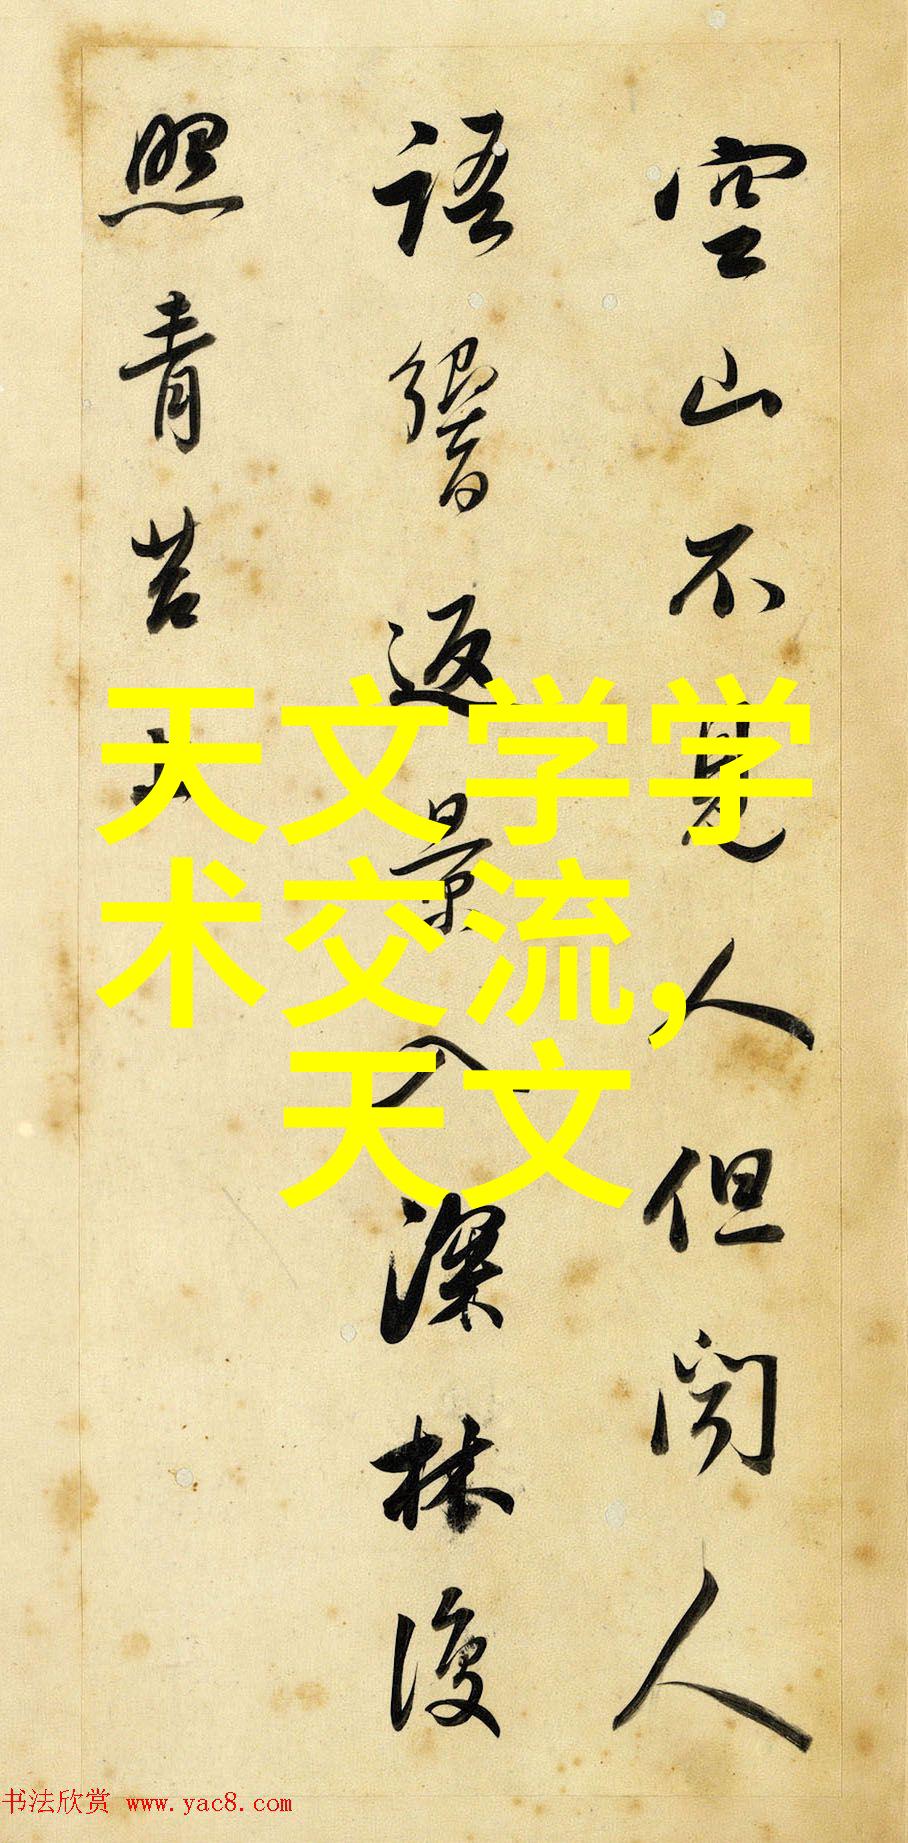 空山不見人但闻人
語響返景入深林復
照青苔上
天文学学
术交流,
天文
书法欣赏 www.yac8.com